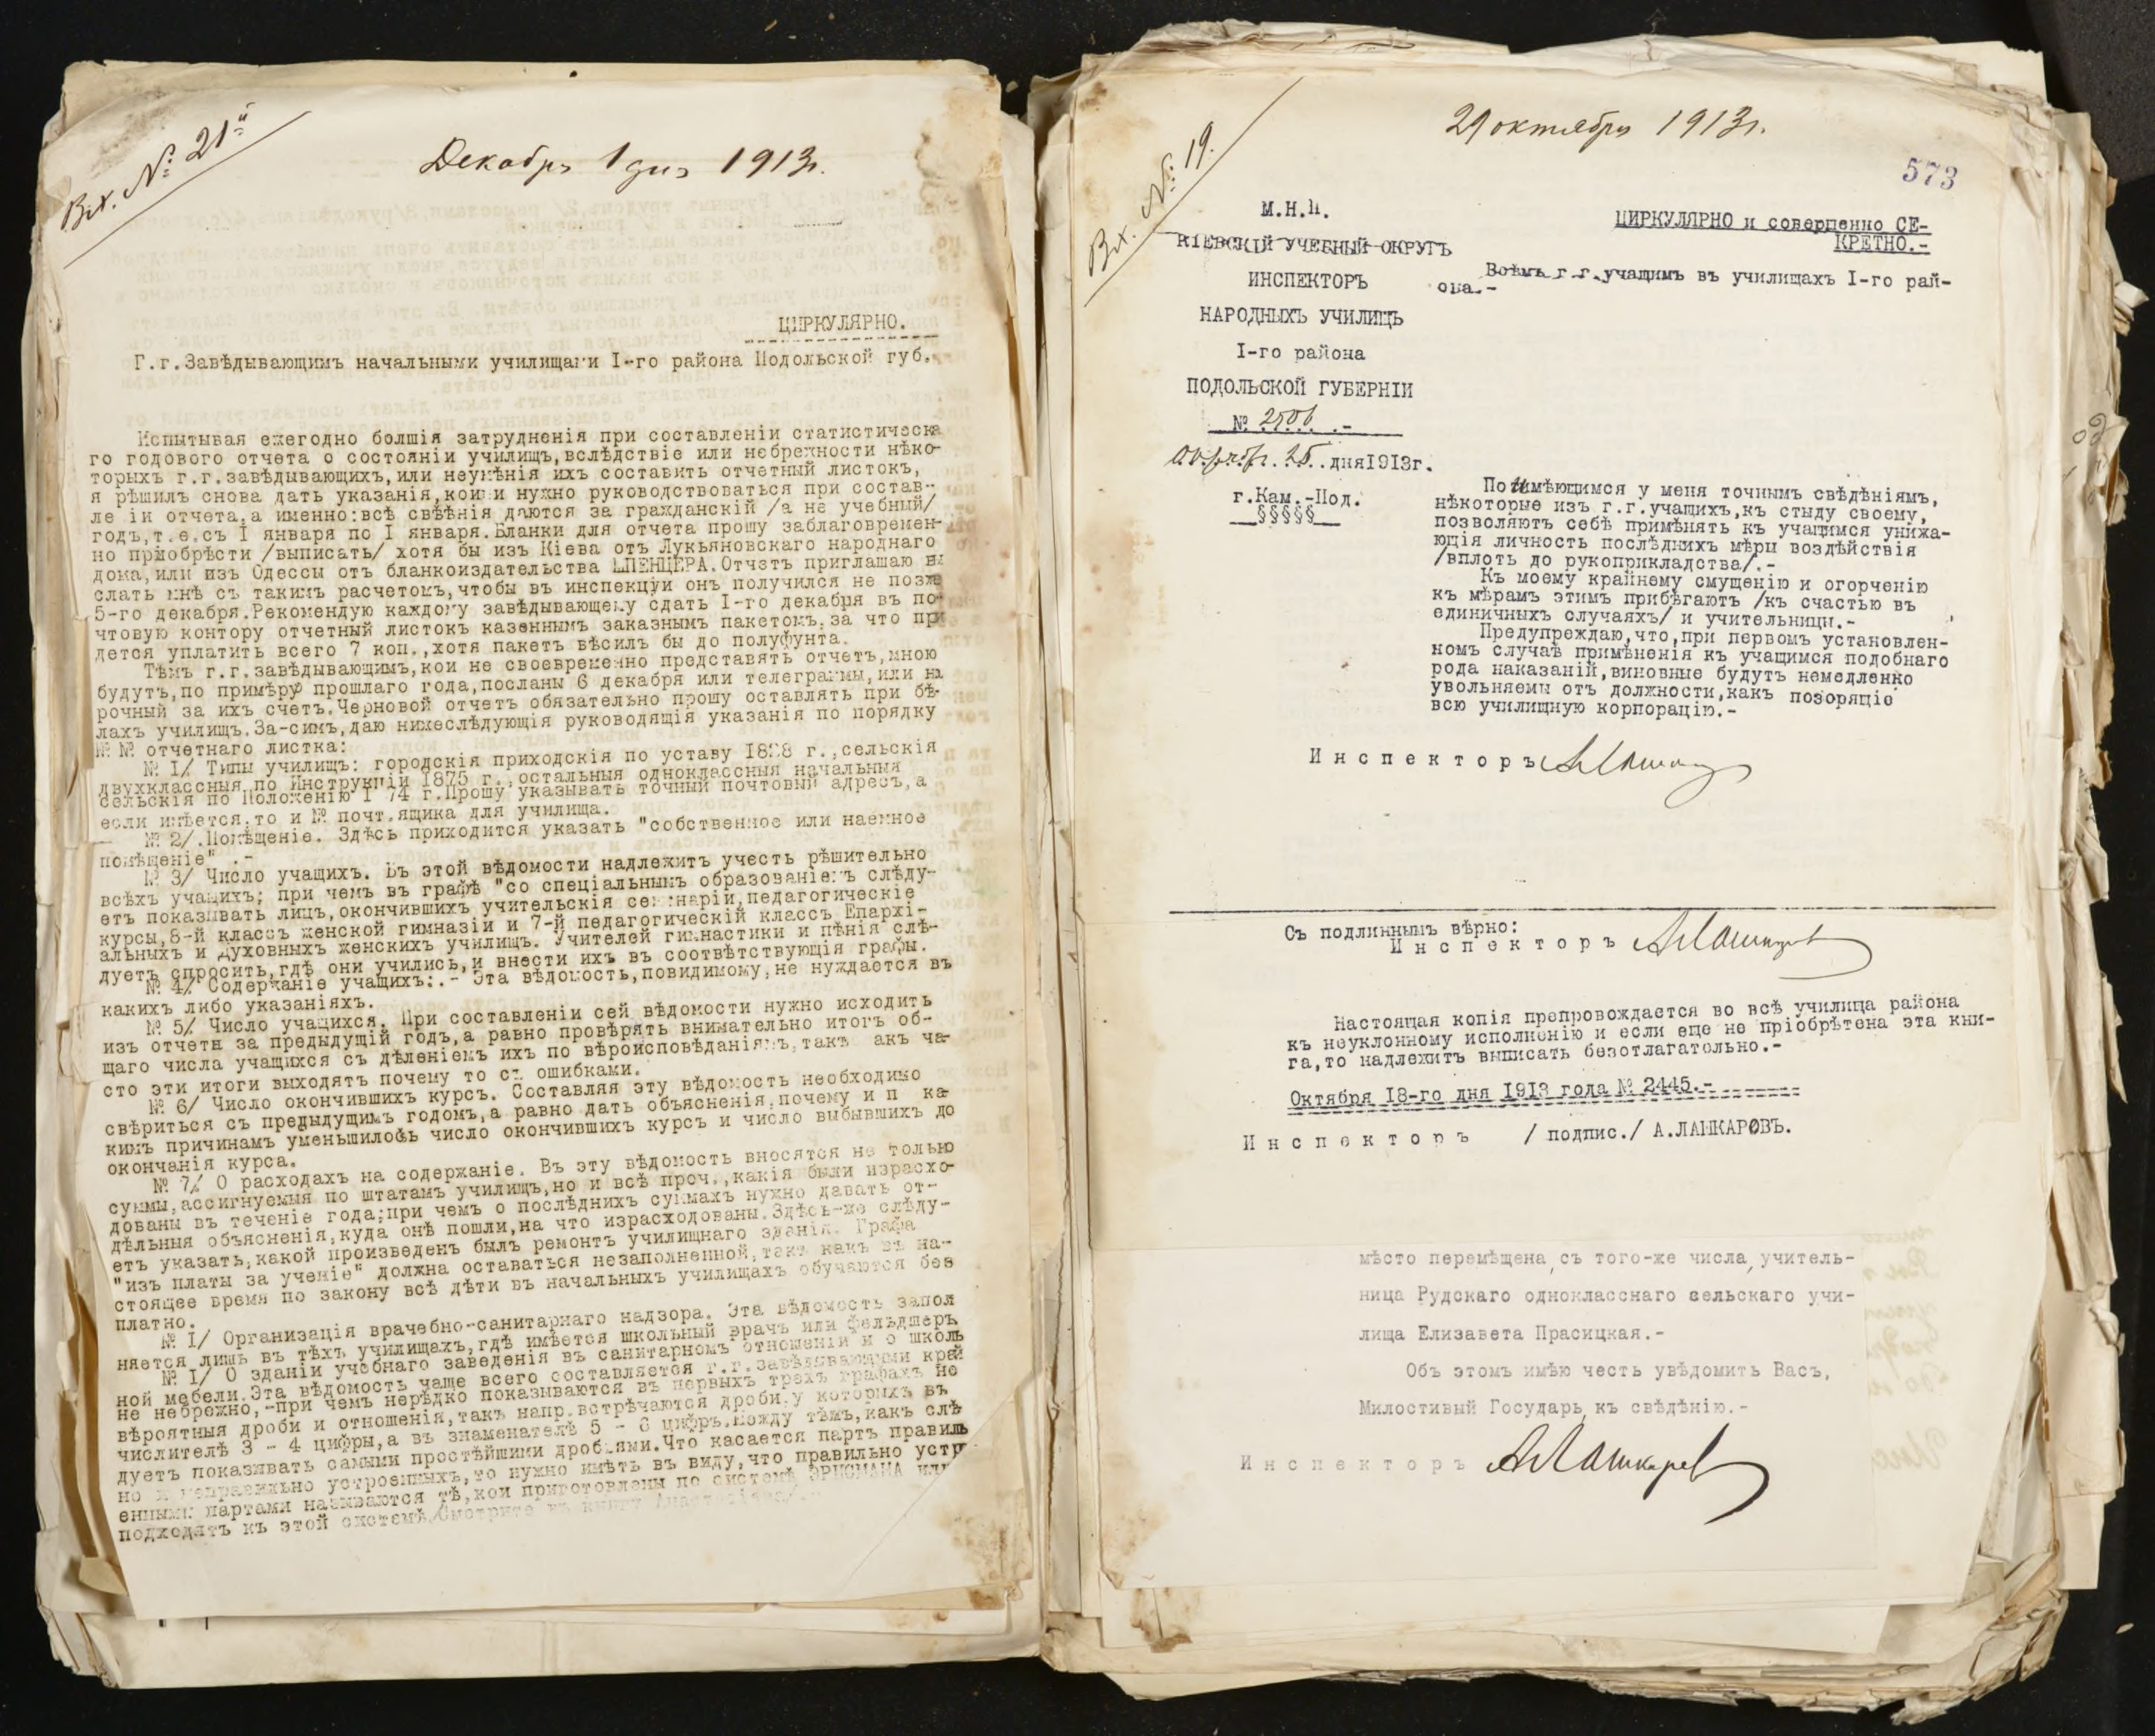 Вх. № 21й
Декабря 1 дня 1913г.
ЦИРКУЛЯРНО.
Г.г.Завѣдывающимъ начальными училищами I-го района Подольской губ.
Испытывая ежегодно болшія затрудненія при составленіи статистическа
го годового отчета о состояніи училищъ,вслѣдствіе или небрежности нѣко-
торыхъ г.г.завѣдывающихъ,или неумѣнія ихъ составить отчетный листокъ,
я рѣшилъ снова дать указанія,кои и нужно руководствоваться при состав-
ле іи отчета,а именно:всѣ свѣѣнія даются за гражданскій /а не учебный/
годъ,т.е.съ I января по I января.Бланки для отчета прошу заблаговремен-
но пріобрѣсти /выписать/ хотя бы изъ Кіева отъ Лукьяновскаго народнаго
дома,или изъ Одессы отъ бланкоиздательства ШПЕНЦЕРА.Отчетъ приглашаю вы
слать мнѣ съ такимъ расчетомъ,чтобы въ инспекціи онъ получился не позже
5-го декабря.Рекомендую каждому завѣдывающему сдать I-го декабря въ по-
чтовую контору отчетный листокъ казеннымъ заказнымъ пакетомъ,за что при
дется уплатить всего 7 коп.,хотя пакетъ вѣсилъ бы до полуфунта.
Тѣмъ г.г.завѣдывающимъ,кои не своевременно представятъ отчетъ,мною
будутъ,по примѣру прошлаго года,посланы 6 декабря или телеграммы,или на
рочный за ихъ счетъ.Черновой отчетъ обязательно прошу оставлять при дѣ-
лахъ училищъ.За-симъ,даю нижеслѣдующія руководящія указанія по порядку
№ № отчетнаго листка:
№ I/ Типы училищъ: городскія приходскія по уставу 1828 г.,сельскія
двухклассныя по Инструкціи 1875 г.,остальныя одноклассныя начальныя
сельскія по Положенію I 74 г.Прошу указывать точный почтовый адресъ,а
если имѣется,то и № почт.ящика для училища.
№ 2/.Помѣщеніе. Здѣсь приходится указать "собственное или наемное
помѣщеніе" .-
№ 3/ Число учащихъ. Въ этой вѣдомости надлежитъ учесть рѣшительно
всѣхъ учащихъ; при чемъ въ графѣ "со спеціальнымъ образованіемъ слѣду-
етъ показывать лицъ,окончившихъ учительскія семинаріи,педагогическіе
курсы,8-й классъ женской гимназіи и 7-й педагогическій классъ Епархі-
альныхъ и духовныхъ женскихъ училищъ. Учителей гимнастики и пѣнія слѣ-
дуетъ спросить,гдѣ они учились,и внести ихъ въ соотвѣтствующія графы.
№ 4/ Содержаніе учащихъ:.- Эта вѣдомость,повидимому,не нуждается въ
какихъ либо указаніяхъ.
№ 5/ Число учащихся. При составленіи сей вѣдомости нужно исходить
изъ отчета за предыдущій годъ,а равно провѣрять внимательно итогъ об-
щаго числа учащихся съ дѣленіемъ ихъ по вѣроисповѣданіямъ,такъ акъ ча-
сто эти итоги выходятъ почему то съ ошибками.
№ 6/ Число окончившихъ курсъ. Составляя эту вѣдомость необходимо
свѣриться съ предыдущимъ годомъ,а равно дать объясненія,почему и п ка-
кимъ причинамъ уменьшилось число окончившихъ курсъ и число выбывшихъ до
окончанія курса.
№ 7/ О расходахъ на содержаніе. Въ эту вѣдомость вносятся не только
суммы,ассигнуемыя по штатамъ училищъ,но и всѣ проч.,какія были израсхо-
дованы въ теченіе года;при чемъ о послѣднихъ суммахъ нужно давать от-
дѣльныя объясненія,куда онѣ пошли,на что израсходованы.Здѣсь-же слѣду-
етъ указать,какой произведенъ былъ ремонтъ училищнаго зданія. Графа
"изъ платы за ученіе" должна оставаться незаполненной,такъ какъ въ на-
стоящее время по закону всѣ дѣти въ начальныхъ училищахъ обучаются без
платно.
№ I/ Организація врачебно-санитарнаго надзора. Эта вѣдомость запол
няется лишь въ тѣхъ училищахъ,гдѣ имѣется школьный врачъ или фельдшеръ
№ I/ О зданіи учебнаго заведенія въ санитарномъ отношеніи и о школь
ной мебели.Эта вѣдомость чаще всего составляется г.г.завѣдывающими край
не небрежно,-при чемъ нерѣдко показываются въ первыхъ трехъ графахъ не
вѣроятныя дроби и отношенія,такъ напр.встрѣчаются дроби,у которыхъ въ
числителѣ 3 - 4 цифры,а въ знаменателѣ 5 - 6 цифръ.Между тѣмъ,какъ слѣ
дуетъ показывать самыми простѣйшими дробями.Что касается партъ правиль
но и неправильно устроенныхъ,то нужно имѣть въ виду,что правильно устр
енными партами называются тѣ,кои приготовлены по системѣ ЭРИСМАНА или
подходятъ къ этой системѣ/Смотрите въ книгу
Вх. № 19.
29 октября 1913г.
573
М.Н.П.
КІЕВСКІЙ УЧЕБНЫЙ ОКРУГЪ
ИНСПЕКТОРЪ
НАРОДНЫХЪ УЧИЛИЩЪ
I-го района
ПОДОЛЬСКОЙ ГУБЕРНІИ
№ 2506 .-
Октябр. 25..дня1913г.
г.Кам.-Под.
§§§§§
ЦИРКУЛЯРНО и совершенно СЕ-
КРЕТНО.-
Всѣмъ г.г.учащимъ въ училищахъ I-го рай-
она.-
По имѣющимся у меня точнымъ свѣдѣніямъ,
нѣкоторые изъ г.г.учащихъ,къ стыду своему,
позволяютъ себѣ примѣнять къ учащимся унижа-
ющія личность послѣднихъ мѣры воздѣйствія
/вплоть до рукоприкладства/.-
Къ моему крайнему смущенію и огорченію
къ мѣрамъ этимъ прибѣгаютъ /къ счастью въ
единичныхъ случаяхъ/ и учительницы.-
Предупреждаю,что,при первомъ установлен-
номъ случаѣ примѣненія къ учащимся подобнаго
рода наказаній,виновные будутъ немедленно
увольняемы отъ должности,какъ позорящіе
всю училищную корпорацію.-
Инспекторъ АЛашкарев
Съ подлиннымъ вѣрно:
Инспекторъ АЛашкарев
Настоящая копія препровождается во всѣ училища района
къ неуклонному исполненію и если еще не пріобрѣтена эта кни-
га,то надлежитъ выписать безотлагательно.-
Октября 18-го дня 1913 года № 2445.-
Инспекторъ / подпис./ А.ЛАШКАРОВЪ.
мѣсто перемѣщена,съ того-же числа,учитель-
ница Рудскаго одноклассnаго сельскаго учи-
лища Елизавета Прасицкая.-
Объ этомъ имѣю честь увѣдомить Васъ,
Милостивый Государь,къ свѣдѣнію.-
Инспекторъ АЛашкарев